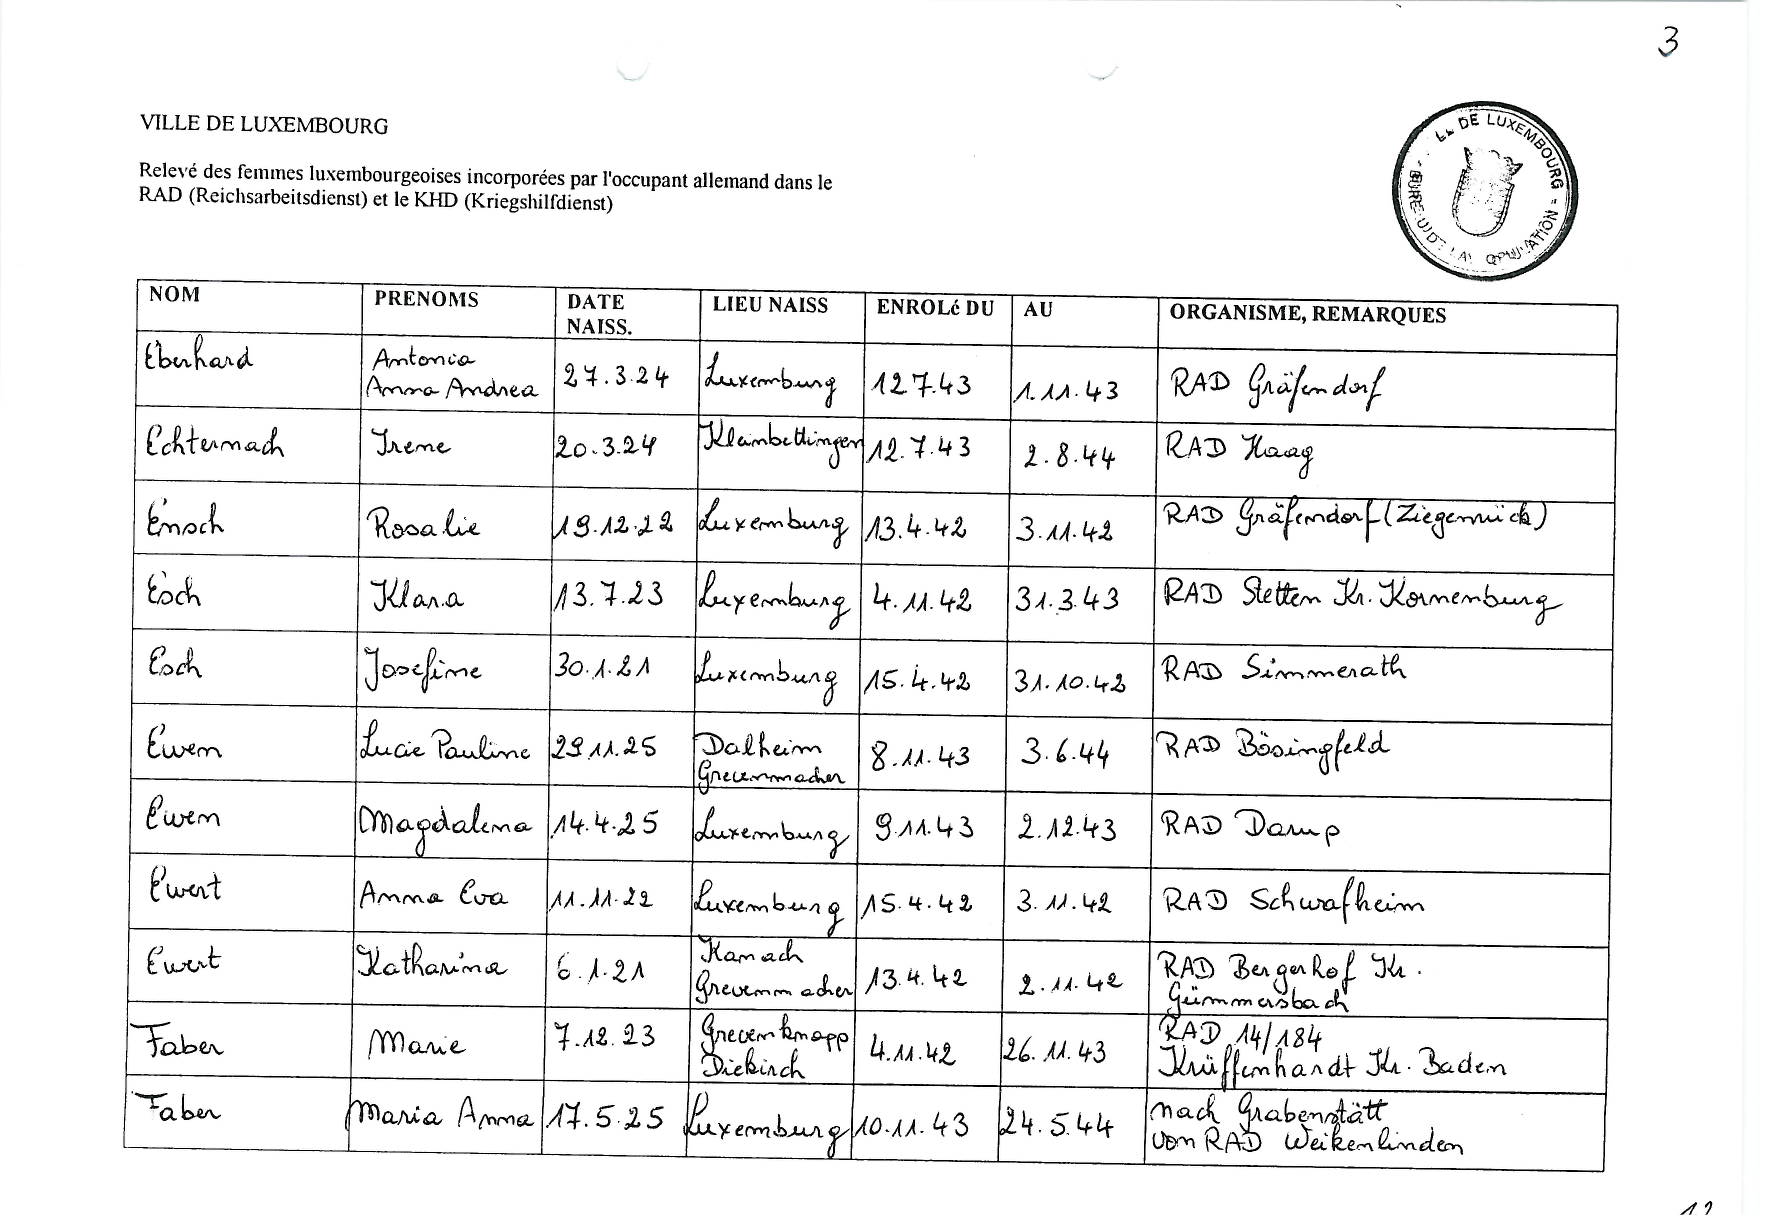 3
VILLE DE LUXEMBOURG
Relevé des femmes luxembourgeoises incorporées par l'occupant allemand dans le
RAD (Reichsarbeitsdienst) et le KHD (Kriegshilfdienst)
DE LUXEMBOURG
NOM PRENOMS DATE NAISS. LIEU NAISS ENROLé DU AU ORGANISME, REMARQUES
Eberhard Antonia Anna Andrea 27.3.24 Luxemburg 12 7.43 1.11.43 RAD Gräfendorf
Echternach Irene 20.3.24 Kleinbettingen 12.7.43 2.8.44 RAD Haag
Ensch Rosalie 19.12.22 Luxemburg 13.4.42 3.11.42 RAD Gräfendorf (Ziegenrück)
Esch Klara 13.7.23 Luxemburg 4.11.42 31.3.43 RAD Stetten Kr. Kornenburg
Esch Josefine 30.1.21 Luxemburg 15.4.42 31.10.42 RAD Simmerath
Ewen Lucie Pauline 29.11.25 Dalheim Grevenmacher 8.11.43 3.6.44 RAD Bösingfeld
Ewen Magdalena 14.4.25 Luxemburg 9.11.43 2.12.43 RAD Darup
Ewert Anna Eva 11.11.22 Luxemburg 15.4.42 3.11.42 RAD Schwafheim
Ewert Katharina 6.1.21 Kanach Grevenmacher 13.4.42 2.11.42 RAD Bergerhof Kr. Gümmersbach
Faber Marie 7.12.23 Grevenknapp Diekirch 4.11.42 26.11.43 RAD 14/184 Krüffenhardt Kr. Baden
Faber Maria Anna 17.5.25 Luxemburg 10.11.43 24.5.44 nach Grabenstätt von RAD Weikenlinden